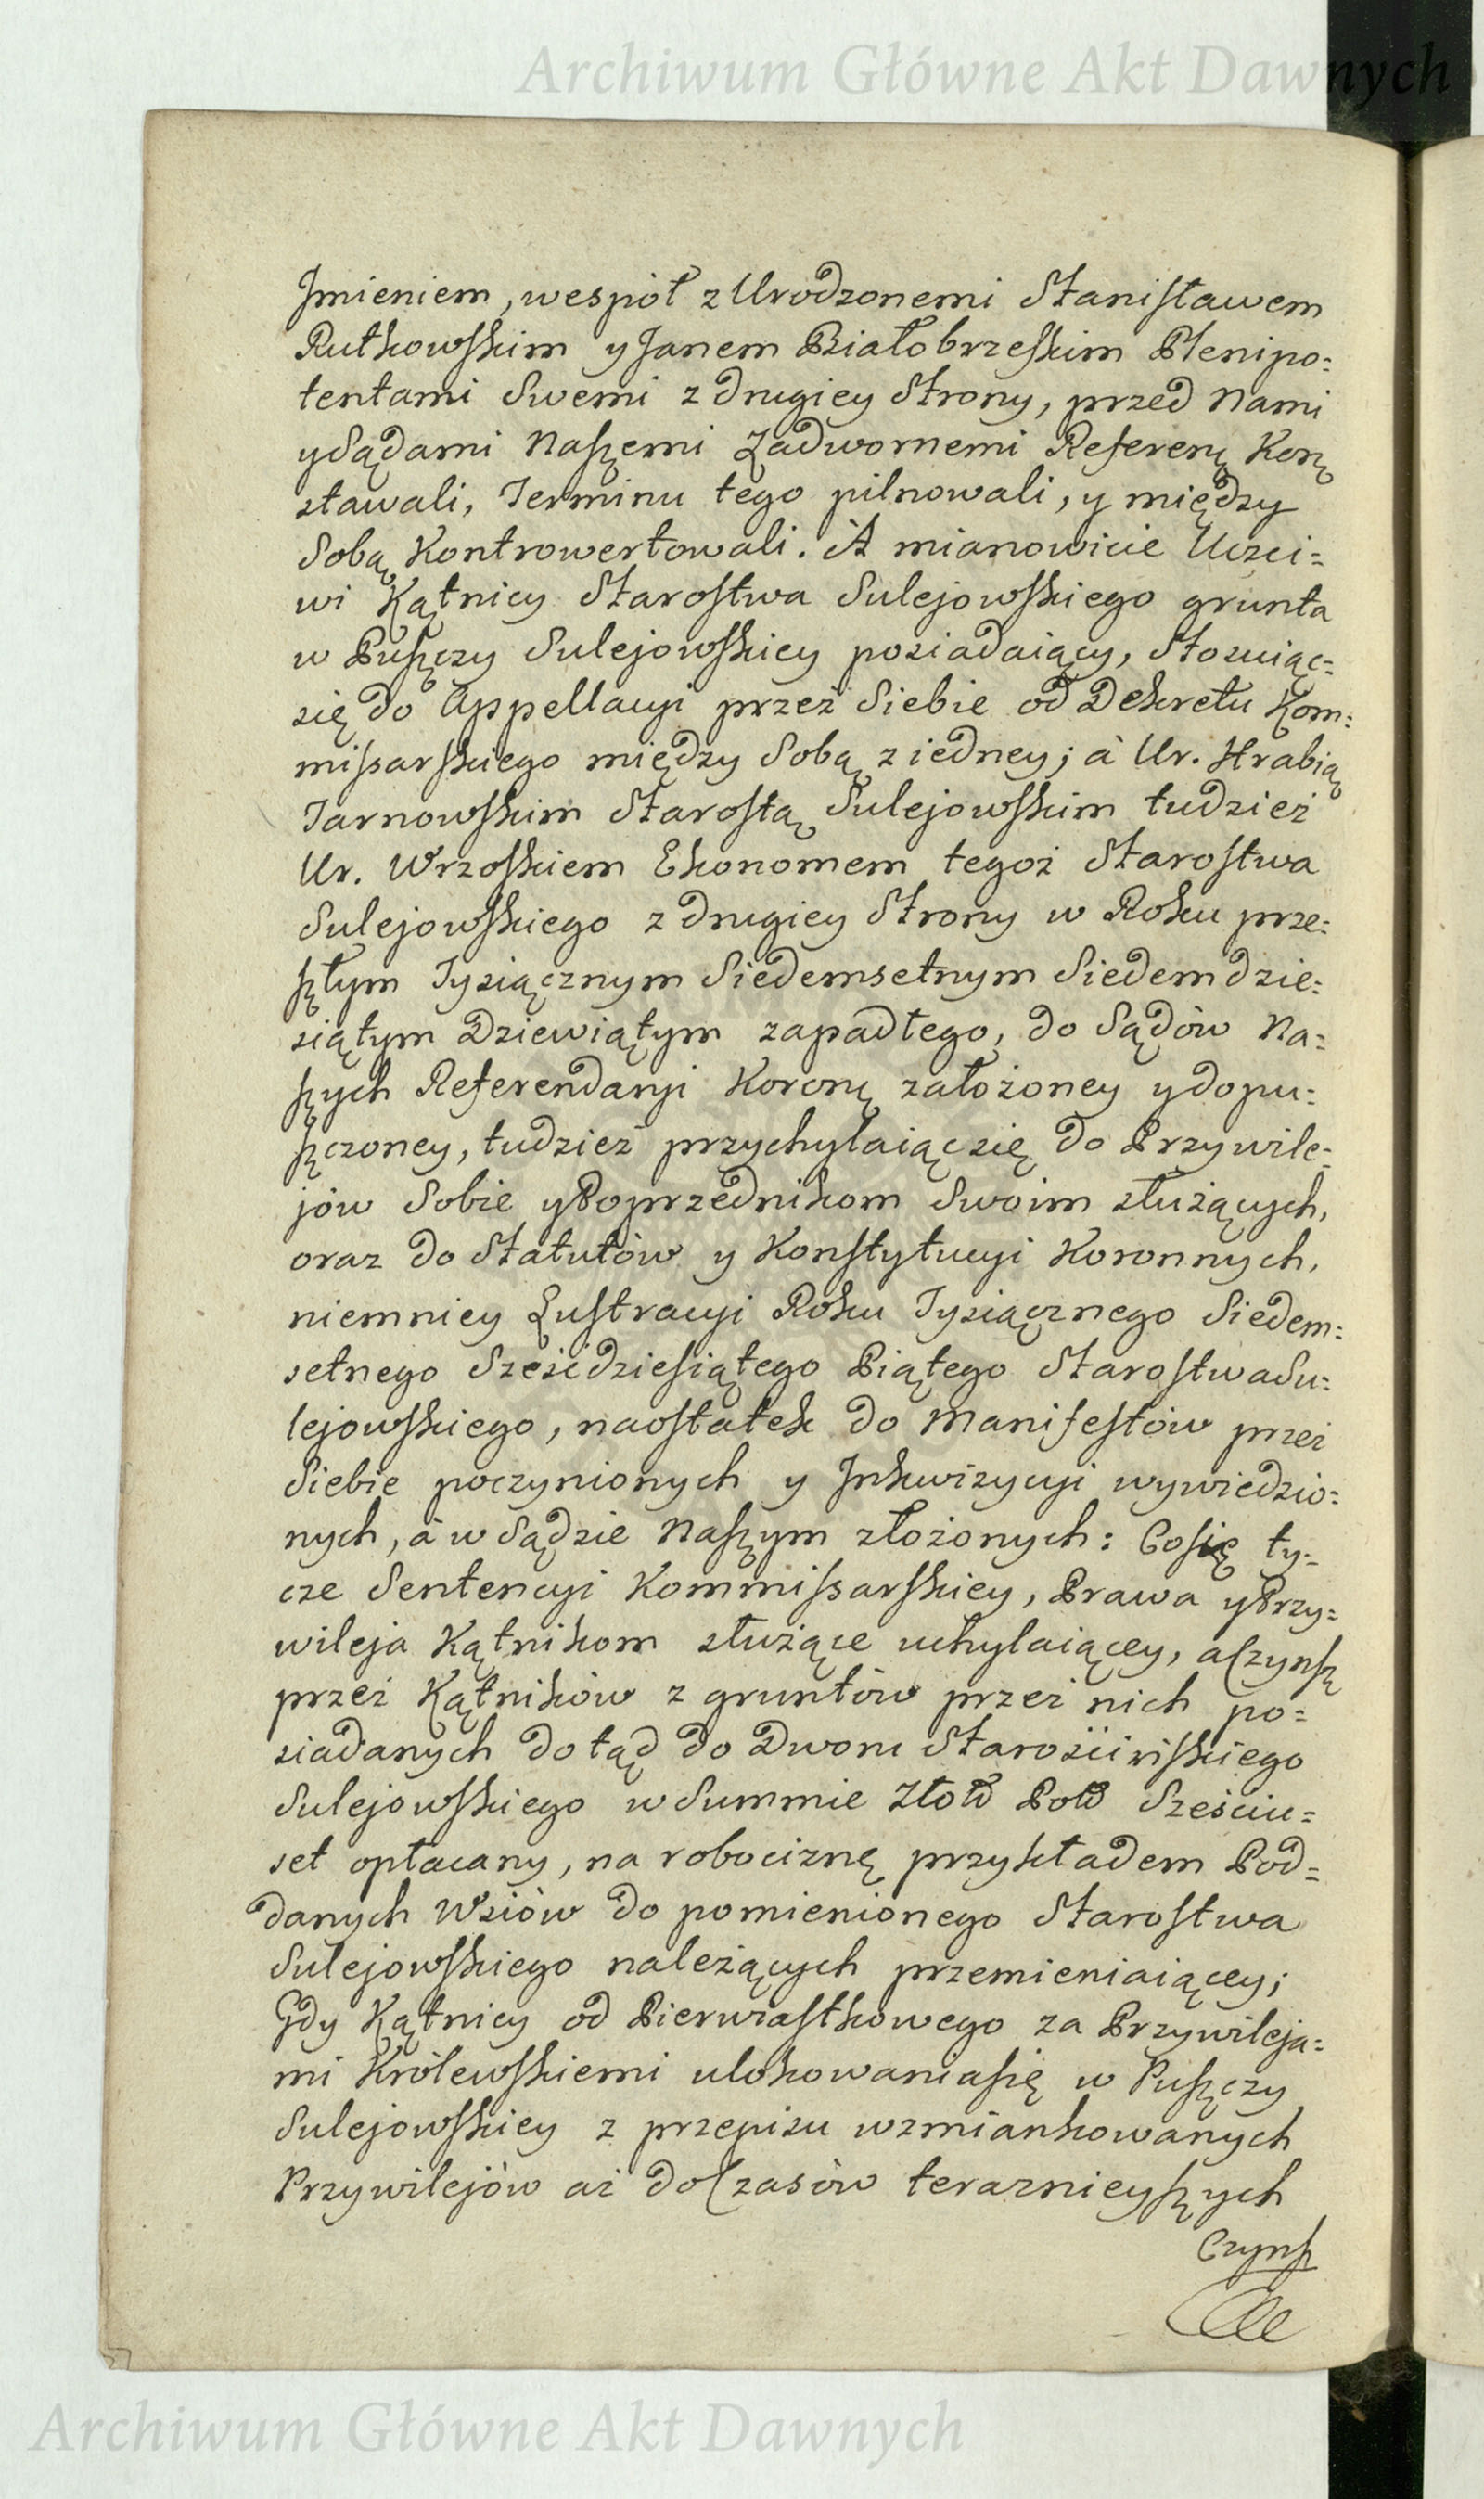 Archiwum Główne Akt Dawnych
Jmieniem, wespół z Urodzonemi Stanisławem
Rutkowskim y Janem Białobrzeskim Plenipo=
tentami Swemi z drugiey Strony, przed Nami
y Sądami Naszemi Zadwornemi Referen. Koron.
stawali, Terminu tego pilnowali, y między
Sobą Kontrowertowali. A mianowicie Uczci=
wi Kątnicy Starostwa Sulejowskiego grunta
w Puszczy Sulejowskiey posiadaiący, Stosuiąc=
się do Appellacyi przez Siebie od Dekretu Kom=
missarskiego między Sobą z iedney; à Ur. Hrabią
Tarnowskim Starostą Sulejowskim tudzież
Ur. Wrzoskiem Ekonomem tegoż Starostwa
Sulejowskiego z drugiey Strony w Roku prze=
szłym Tysiącznym Siedemsetnym Siedemdzie=
siątym Dziewiątym zapadłego, do Sądów Na=
szych Referendaryi Koronę założoney y dopu=
szczoney, tudzież przychylaiąc się do Przywile=
jów Sobie y Poprzednikom Swoim służących,
oraz do Statutów y Konstytucyi Koronnych,
niemniey Lustracyi Roku Tysiącznego Siedem=
setnego Sześćdziesiątego Piątego Starostwa Su=
lejowskiego, naostatek do Manifestów przez
Siebie poczynionych y Jnkwizycyi wywiedzio=
nych, à w Sądzie Naszym złożonych: Co się ty=
cze Sentencyi Kommissarskiey, Prawa y Przy=
wileja Kątnikom służące uchylaiącey, a Czynsz
przez Kątników z gruntów przez nich po=
siadanych dotąd do Dworu Starościńskiego
Sulejowskiego w Summie Złotł Polł Sześciu=
set opłacany, na robociznę przykładem Pod=
danych Wsiów do pomienionego Starostwa
Sulejowskiego należących przemieniaiącey;
Gdy Kątnicy od Pierwiastkowego za Przywileja=
mi Królewskiemi ulokowania się w Puszczy
Sulejowskiey z przepisu wzmiankowanych
Przywilejów aż do Czasów teraznieyszych
Czynsz
Archiwum Główne Akt Dawnych